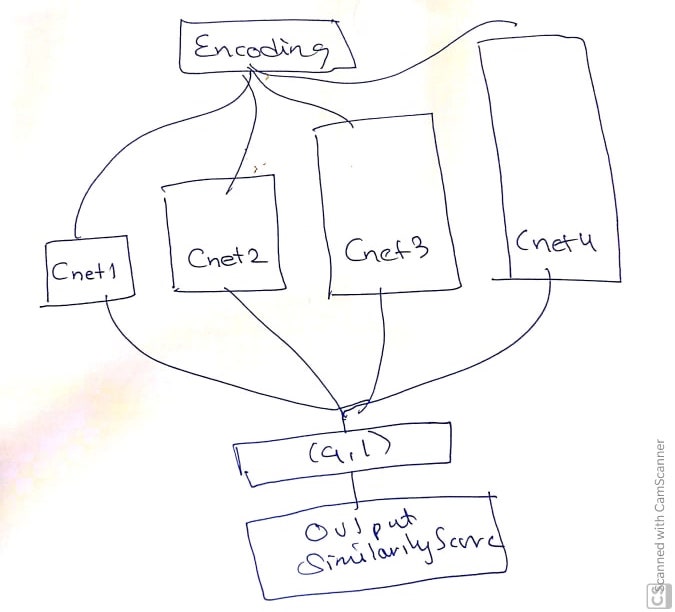 Encoding
Cnet1
Cnet2
Cnet3
Cnet4
(9,1)
Output
Similarily Score
CS Scanned with CamScanner